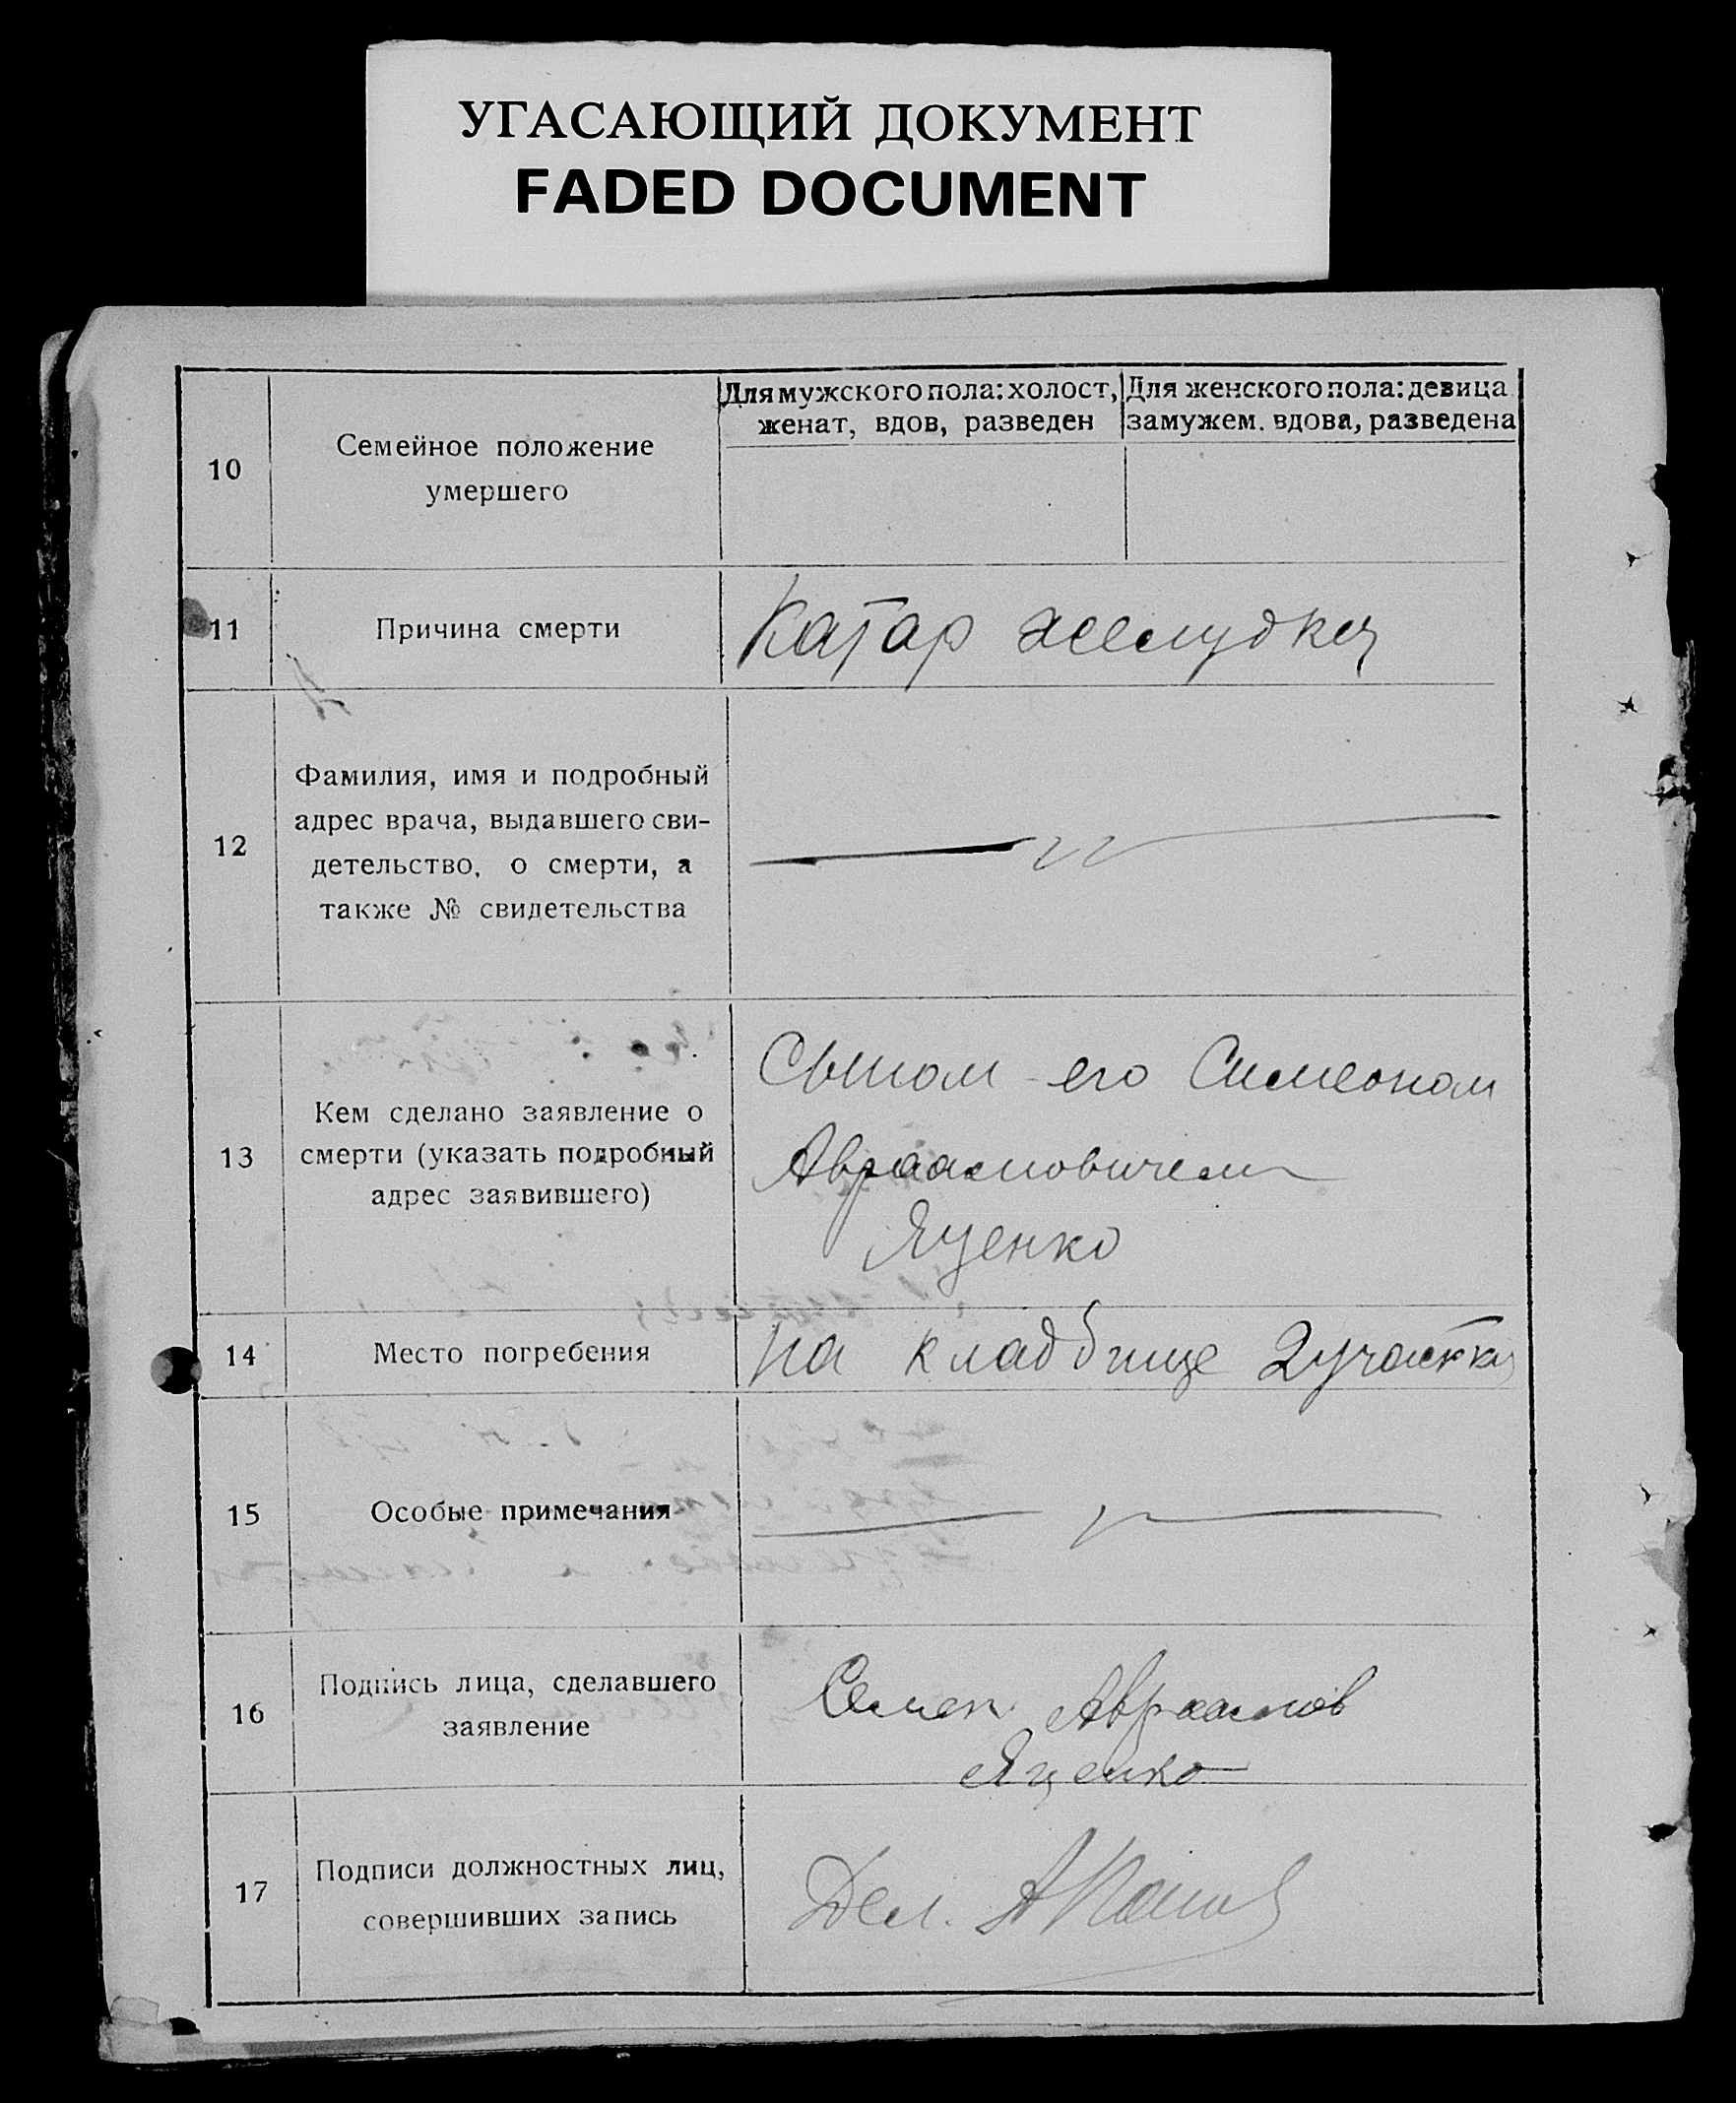 УГАСАЮЩИЙ ДОКУМЕНТ
FADED DOCUMENT
10
Семейное положение
умершего
Для мужского пола: холост,
женат, вдов, разведен
Для женского пола: девица
замужем. вдова, разведена
11
Причина смерти
Катар желудка
12
Фамилия, имя и подробный
адрес врача, выдавшего сви-
детельство, о смерти, а
также № свидетельства
13
Кем сделано заявление о
смерти (указать подробный
адрес заявившего)
Сыном его Симеоном
Авраамовичем
Яценко
14
Место погребения
На кладбище 2 участка
15
Особые примечания
16
Подпись лица, сделавшего
заявление
Семен Авраамов
Яценко
17
Подписи должностных лиц,
совершивших запись
Дел.